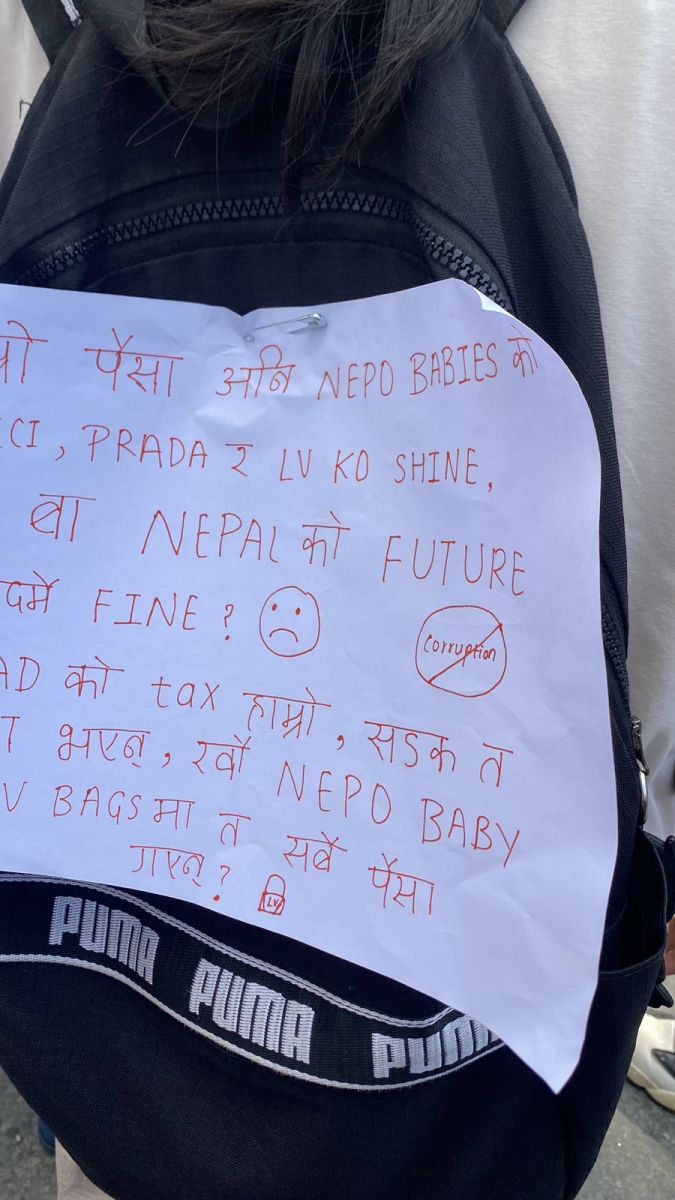 म्रो पैसा अनि NEPO BABIES को
CI, PRADA र LV KO SHINE,
बा NEPAL को FUTURE
FINE?
corruption
AD को tax हाम्रो, सडक त
भएन, रवौ NEPO BABY
V BAGS मा त सबै पैसा
गएन?
LV
PUMA
PUMA
PUMA